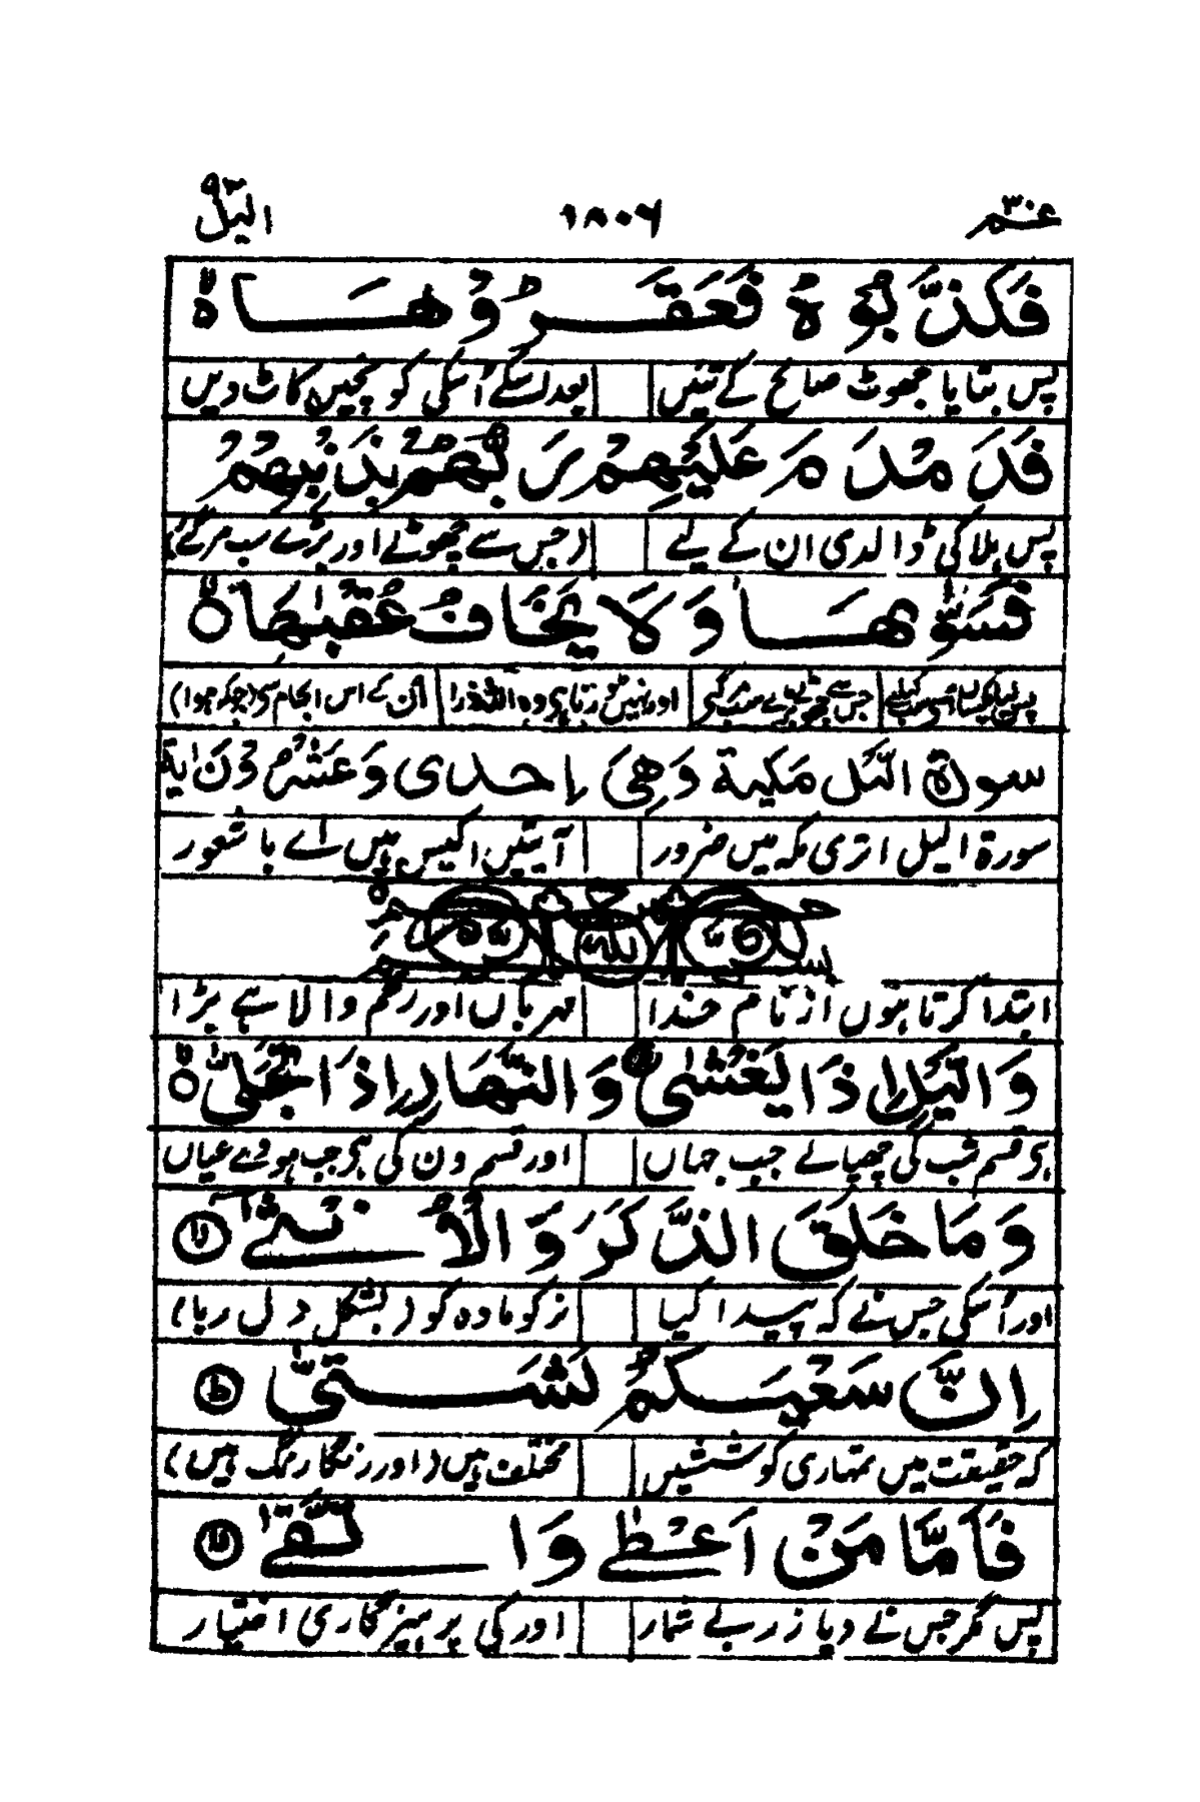 عم ٣٠ ١٨٠٦ الیل ٩٢
فَكَذَّبُوْهُ فَعَقَرُوْهَا
پس بتایا جھوٹ صالح کے تئیں بعد اسکے اُسکی کونچیں کاٹ دیں
فَدَمْدَمَ عَلَيْهِمْ رَبُّهُمْ بِذَنْبِهِمْ
پس ہلاکی ڈالدی ان کے لیے (جس سے چھوٹے اور بڑے سب مر گئے)
فَسَوّٰىهَا وَلَا يَخَافُ عُقْبٰهَا
اور نہیں رتا ہی وہ اللہ ذرا اُن کے اس انجام سی (جو کہ ہوا)
سورة الیل مکیة وهی احدی وعشرون اٰیة
سورۃ الیل اتری مکہ میں ضرور آیتیں اکیس ہیں اے با شعور
بسم الله الرحمن الرحیم
ابتدا کرتا ہوں از نام خدا مہرباں اور رحم والا ہے بڑا
وَالَّيْلِ اِذَا يَغْشٰى وَالنَّهَارِ اِذَا تَجَلّٰى
ہی قسم شب کی چھپالے جب جہاں اور قسم دن کی ہی جب ہووے عیاں
وَمَا خَلَقَ الذَّكَرَ وَالْاُنْثٰى
اور اُسکی جس نے کہ پیدا کیا نر کو مادہ کو (بشکل دل ربا)
اِنَّ سَعْيَكُمْ لَشَتّٰى
کہ حقیقت میں تمہاری کوششیں مختلف ہیں (اور رنگا رنگ ہیں)
فَاَمَّا مَنْ اَعْطٰى وَاتَّقٰى
پس مگر جس نے دیا زر بے شمار اور کی پرہیزگاری اختیار